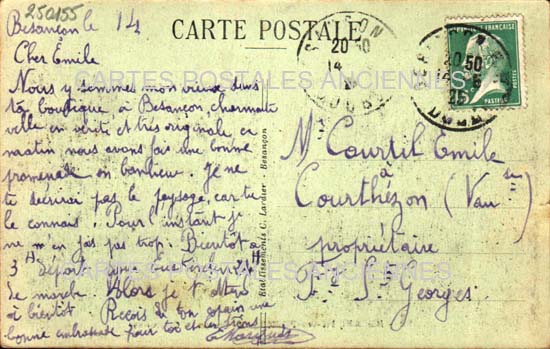 250155
Besançon le 14
CARTE POSTALE
Cher Emile
Nous y sommes mon vieux dans
ta boutique, à Besançon, charmante
ville en vérité et très originale. Ce
matin nous avons fait une bonne
promenade en banlieue. Je ne
te décrirai pas le paysage, car tu
le connais. Pour l'instant je
ne m'en fais pas trop. Bientôt
3 départ
de marche. Alors je t'
à bientôt Reçois de ton copain une
bonne embrassade pour toi et les tiens
20 50
14
DOUBS
20 50
14
25
DOUBS
POSTES
PASTEUR
Mr Courtil Emile
à
Courthézon (Vause)
propriétaire
Fg St Georges
Etablissements C. Lardier - Besançon
CARTES POSTALES ANCIENNES
CARTES POSTALES ANCIENNES